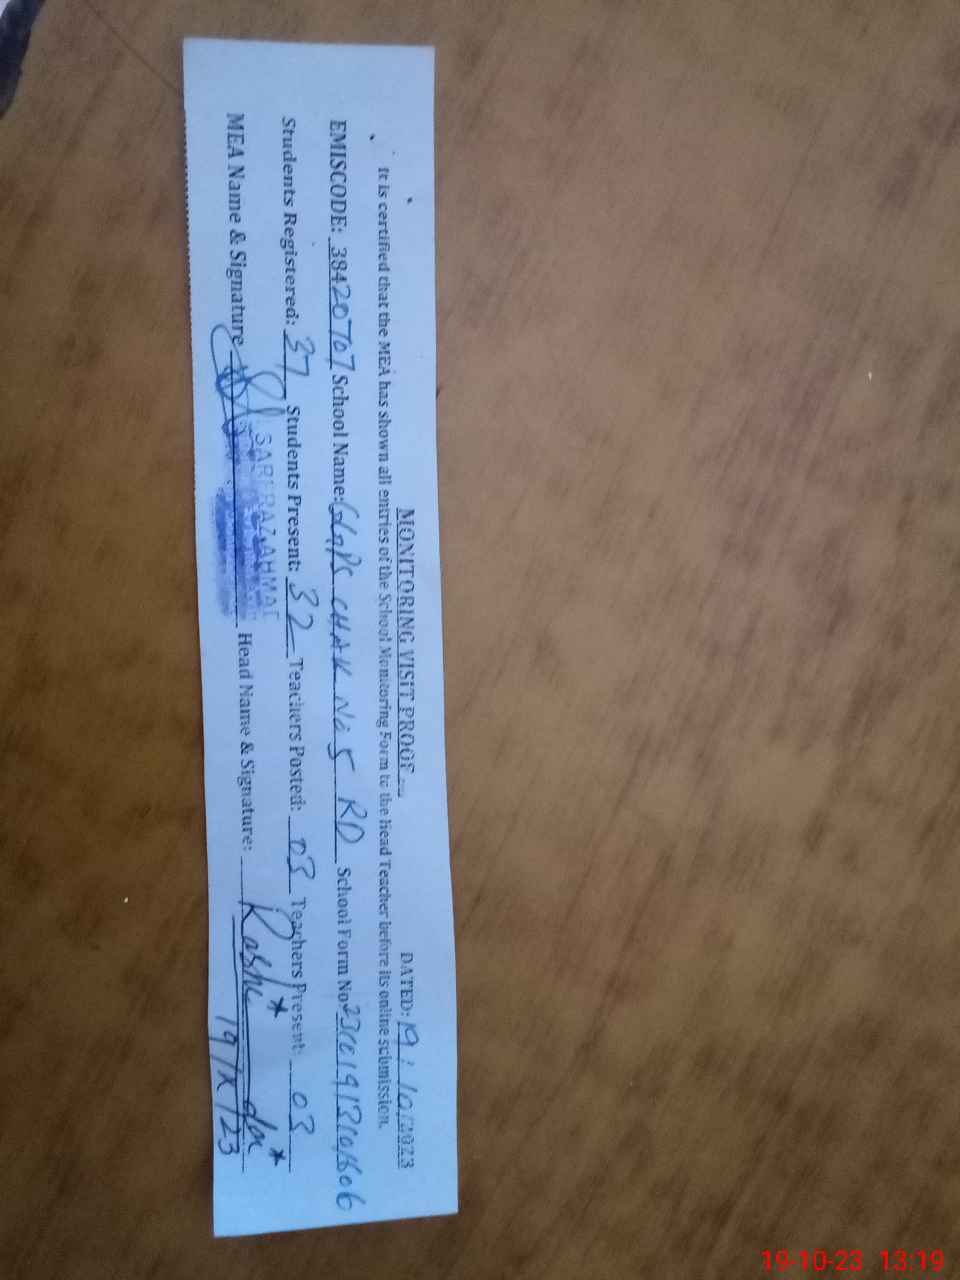 MONITORING VISIT PROOF
DATED: 19/10/2023
It is certified that the MEA has shown all entries of the School Monitoring Form to the Head Teacher before its online submission.
EMISCODE: 38420707 School Name: GGPS CHAK No 5 RD School Form No:
Students Registered: 37 Students Present: 32 Teachers Posted: 03 Teachers Present: 03
MEA Name & Signature SARFRAZ AHMAD Head Name & Signature:
19/X/23
19-10-23 13:19